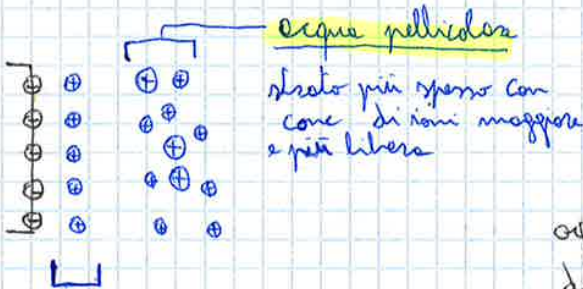 acqua pellicolare
strato più spesso con
conc di ioni maggiore
e più libera